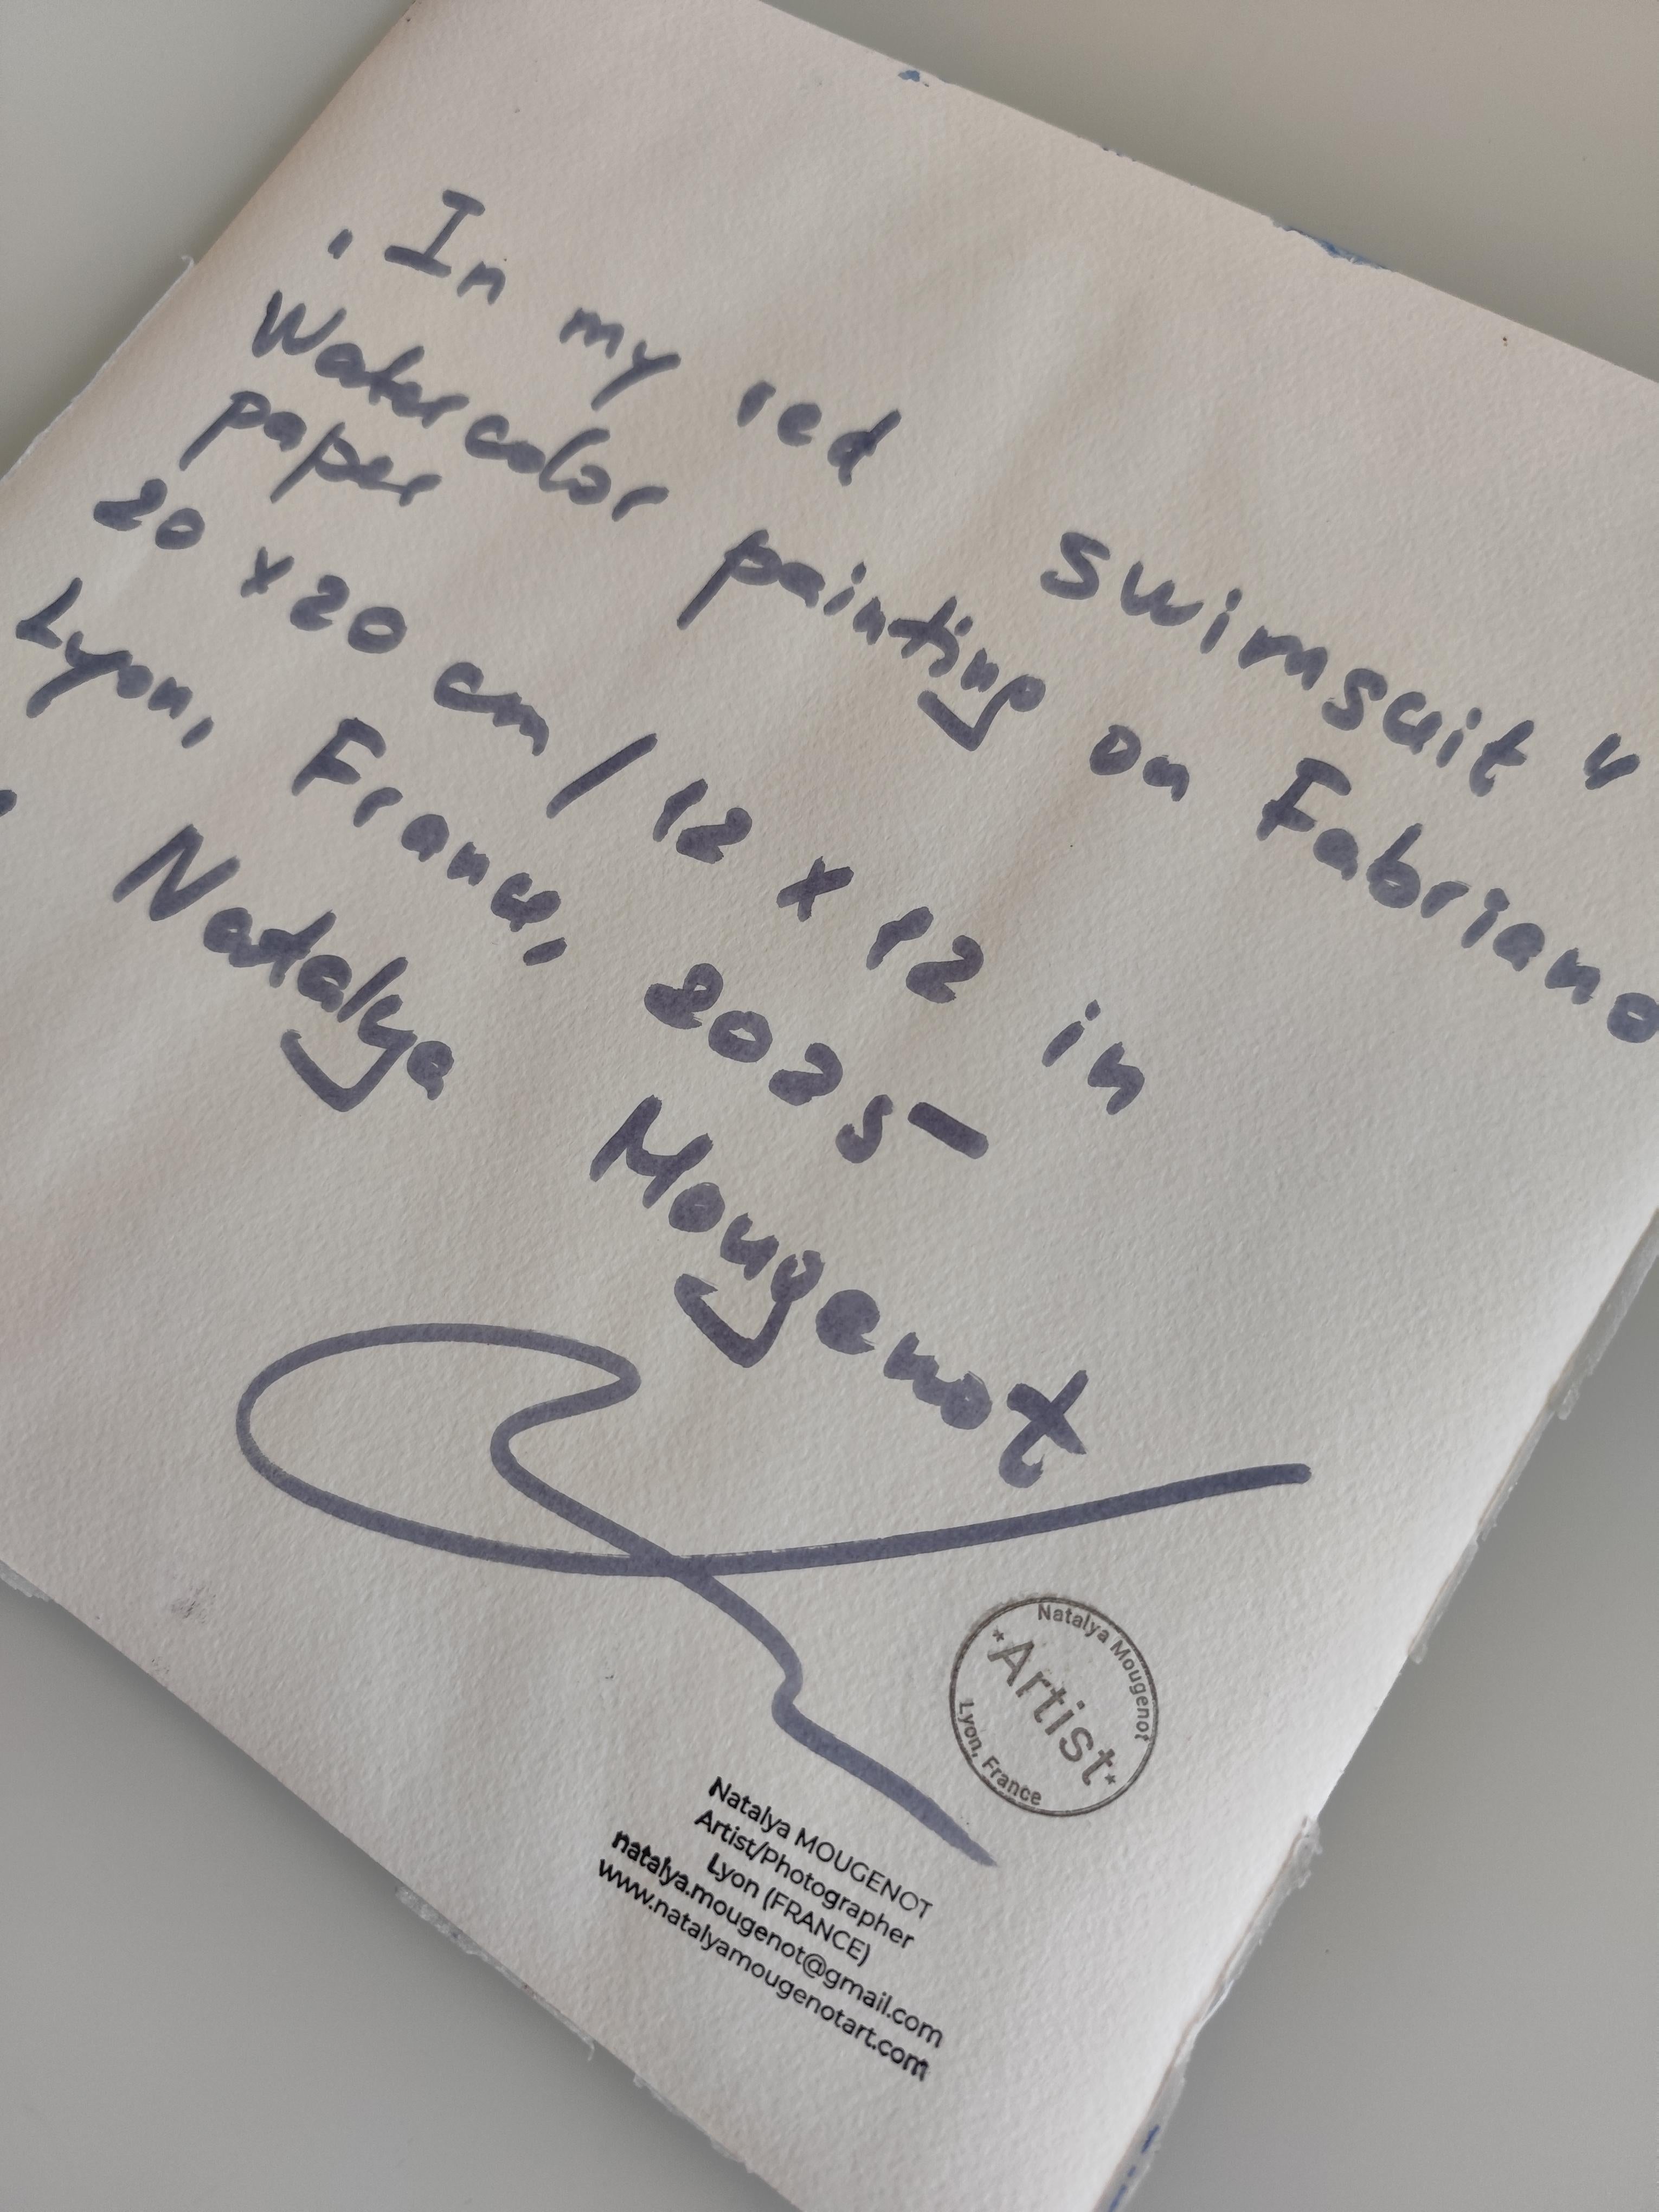 "In my red swimsuit"
Watercolor painting on Fabriano
paper
20 x 20 cm / 12 x 12 in
Lyon, France, 2025
Natalya Mougenot
Natalya Mougenot
*Artist*
Lyon, France
Natalya MOUGENOT
Artist/Photographer
Lyon (FRANCE)
natalya.mougenot@gmail.com
www.natalyamougenotart.com